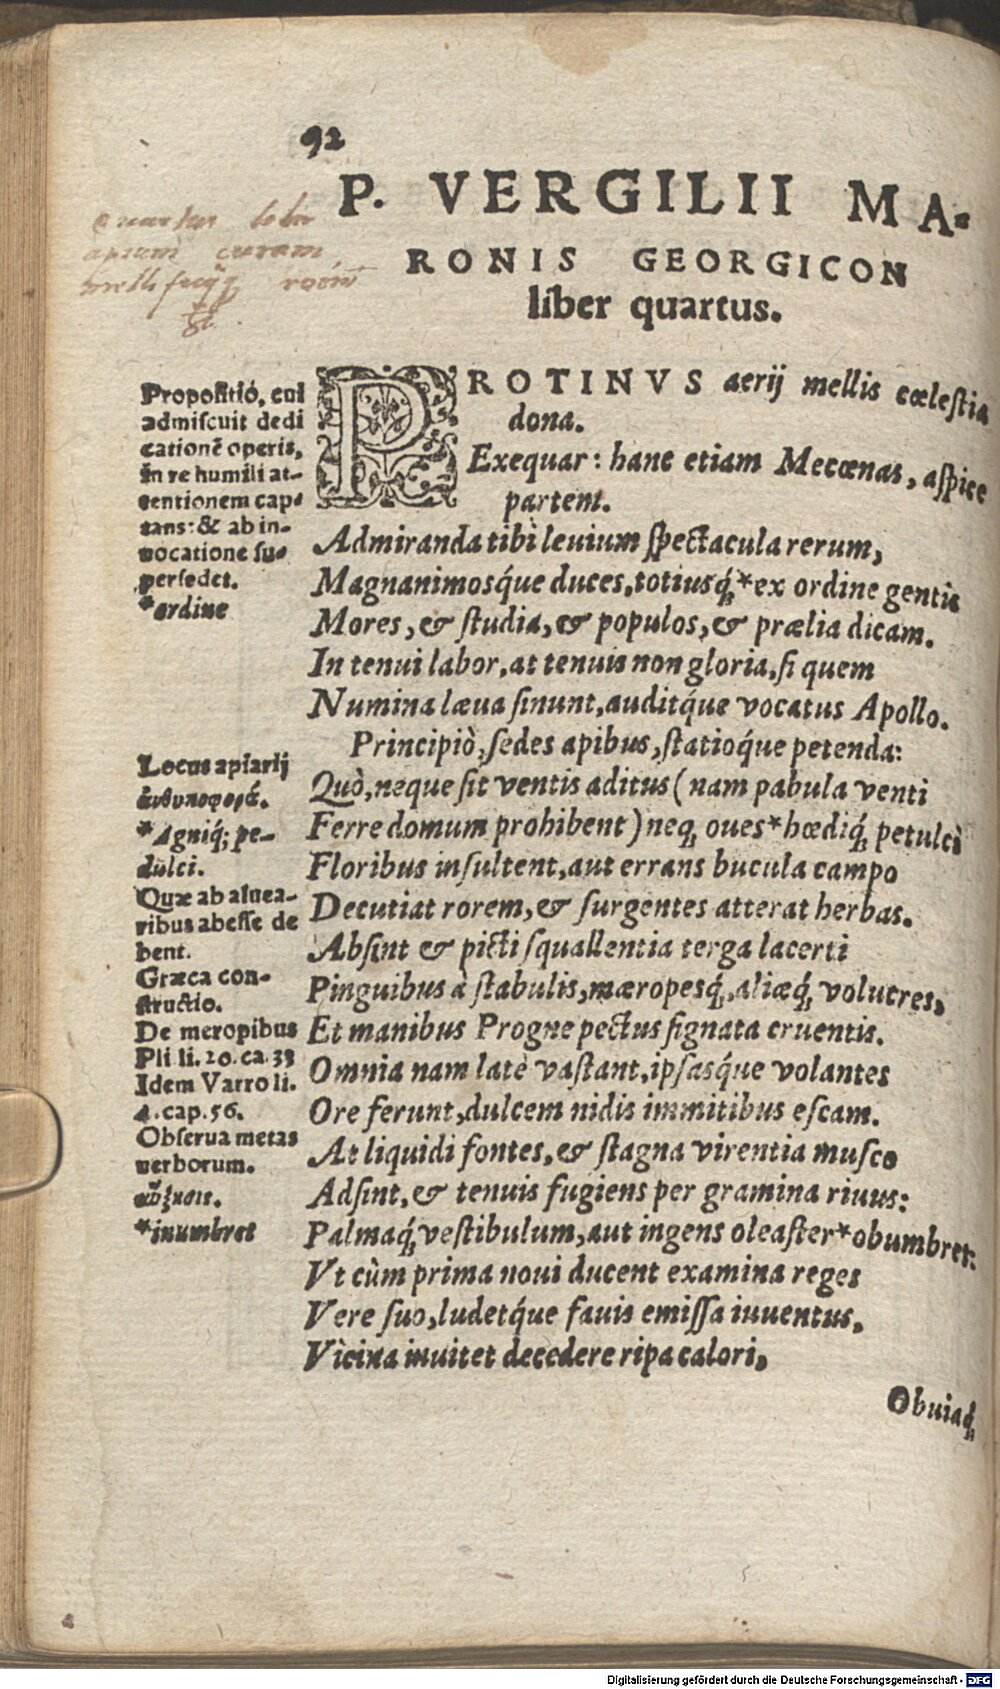 92
P. VERGILII MA-
RONIS GEORGICON
liber quartus.
apium curam
Propositió, cui
admiscuit dedi
cationẽ operis,
in re humili at-
tentionem cap-
tans: & ab in-
vocatione su-
persedet.
*ordine
PROTINVS aerij mellis cœlestia
dona.
Exequar: hanc etiam Mecœnas, aspice
partem.
Admiranda tibi leuium spectacula rerum,
Magnanimosq́ue duces, totiusq́; *ex ordine gentis
Mores, & studia, & populos, & prælia dicam.
In tenui labor, at tenuis non gloria, si quem
Numina læua sinunt, auditq́ue vocatus Apollo.
Principiò, sedes apibus, statioq́ue petenda:
Quò, neque sit ventis aditus (nam pabula venti
Ferre domum prohibent) neq; oues *hœdiq́; petulci
Floribus insultent, aut errans bucula campo
Decutiat rorem, & surgentes atterat herbas.
Absint & picti squallentia terga lacerti
Pinguibus à stabulis, mæropesq́;, aliæq́; volucres,
Et manibus Progne pectus signata cruentis.
Omnia nam latè vastant, ipsasq́ue volantes
Ore ferunt, dulcem nidis immitibus escam.
At liquidi fontes, & stagna virentia musco
Adsint, & tenuis fugiens per gramina riuus:
Palmaq́; vestibulum, aut ingens oleaster *obumbret:
Vt cùm prima noui ducent examina reges
Vere suo, ludetq́ue fauis emissa iuuentus,
Vicina inuitet decedere ripa calori,
Obuiaq́;
Locus apiarij
ἀνθυποφορά.
*Agniq́; pe-
dulci.
Quæ ab aluea-
ribus abesse de
bent.
Græca con-
structio.
De meropibus
Pli li. 20. ca. 33
Idem Varro li.
4. cap. 56.
Obserua metas
verborum.
αὔξησις.
*inumbret
Digitalisierung gefördert durch die Deutsche Forschungsgemeinschaft - DFG